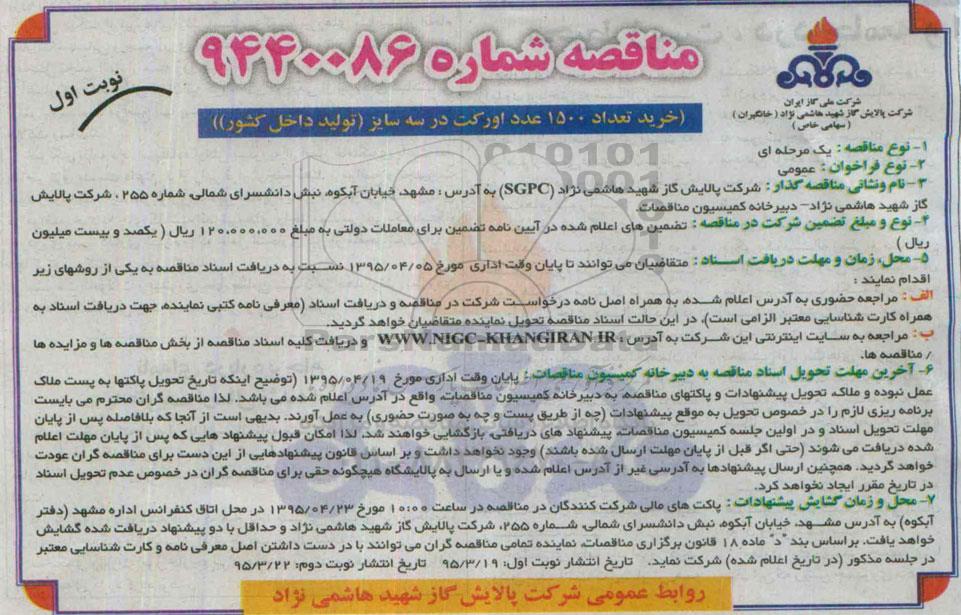 مناقصه شماره ۹۴۴۰۰۸۶
نوبت اول
شرکت ملی گاز ایران
شرکت پالایش گاز شهید هاشمی نژاد ( خانگیران )
( سهامی خاص )
(خرید تعداد ۱۵۰۰ عدد اورکت در سه سایز (تولید داخل کشور))
۱- نوع مناقصه : یک مرحله ای
۲- نوع فراخوان : عمومی
۳- نام ونشانی مناقصه گذار : شرکت پالایش گاز شهید هاشمی نژاد (SGPC) به آدرس : مشهد، خیابان آبکوه، نبش دانشسرای شمالی، شماره ۲۵۵ ، شرکت پالایش
گاز شهید هاشمی نژاد– دبیرخانه کمیسیون مناقصات
۴- نوع و مبلغ تضمین شرکت در مناقصه : تضمین های اعلام شده در آیین نامه تضمین برای معاملات دولتی به مبلغ ۱۲۰،۰۰۰،۰۰۰ ریال ( یکصد و بیست میلیون
ریال )
۵- محل، زمان و مهلت دریافت اسـناد : متقاضیان می توانند تا پایان وقت اداری مورخ ۱۳۹۵/۰۴/۰۵ نسبت به دریافت اسناد مناقصه به یکی از روشهای زیر
اقدام نمایند :
الف : مراجعه حضوری به آدرس اعلام شده، به همراه اصل نامه درخواست شرکت در مناقصه و دریافت اسناد (معرفی نامه کتبی نماینده، جهت دریافت اسناد به
همراه کارت شناسایی معتبر الزامی است)، در این حالت اسناد مناقصه تحویل نماینده متقاضیان خواهد گردید.
ب : مراجعه به سایت اینترنتی این شرکت به آدرس : WWW.NIGC-KHANGIRAN.IR و دریافت کلیه اسناد مناقصه از بخش مناقصه ها و مزایده ها
/ مناقصه ها.
۶- آخرین مهلت تحویل اسناد مناقصه به دبیرخانه کمیسیون مناقصات : پایان وقت اداری مورخ ۱۳۹۵/۰۴/۱۹ (توضیح اینکه تاریخ تحویل پاکتها به پست ملاک
عمل نبوده و ملاک، تحویل پیشنهادات و پاکتهای مناقصه، به دبیرخانه کمیسیون مناقصات، واقع در آدرس اعلام شده می باشد. لذا مناقصه گران محترم می بایست
برنامه ریزی لازم را در خصوص تحویل به موقع پیشنهادات (چه از طریق پست و چه به صورت حضوری) به عمل آورند. بدیهی است از آنجا که بلافاصله پس از پایان
مهلت تحویل اسناد و در اولین جلسه کمیسیون مناقصات، پیشنهاد های دریافتی، بازگشایی خواهند شد، لذا امکان قبول پیشنهاد هایی که پس از پایان مهلت اعلام
شده دریافت می شوند (حتی اگر قبل از پایان مهلت ارسال شده باشند) وجود نخواهد داشت و بر اساس قانون پیشنهادهایی از این دست برای مناقصه گران عودت
خواهد گردید. همچنین ارسال پیشنهادها به آدرسی غیر از آدرس اعلام شده و یا ارسال به پالایشگاه هیچگونه حقی برای مناقصه گران در خصوص عدم تحویل اسناد
در تاریخ مقرر ایجاد نخواهد کرد.
۷- محل و زمان گشایش پیشنهادات : پاکت های مالی شرکت کنندگان در مناقصه در ساعت ۱۰:۰۰ مورخ ۱۳۹۵/۰۴/۲۳ در محل اتاق کنفرانس اداره مشهد (دفتر
آبکوه) به آدرس مشهد، خیابان آبکوه، نبش دانشسرای شمالی، شماره ۲۵۵، شرکت پالایش گاز شهید هاشمی نژاد و حداقل با دو پیشنهاد دریافت شده گشایش
خواهد یافت. براساس بند "د" ماده ۱۸ قانون برگزاری مناقصات، نماینده تمامی مناقصه گران می توانند با در دست داشتن اصل معرفی نامه و کارت شناسایی معتبر
در جلسه مذکور (در تاریخ اعلام شده) شرکت نماید. تاریخ انتشار نوبت اول: ۹۵/۳/۱۹ تاریخ انتشار نوبت دوم: ۹۵/۳/۲۲
روابط عمومی شرکت پالایش گاز شهید هاشمی نژاد